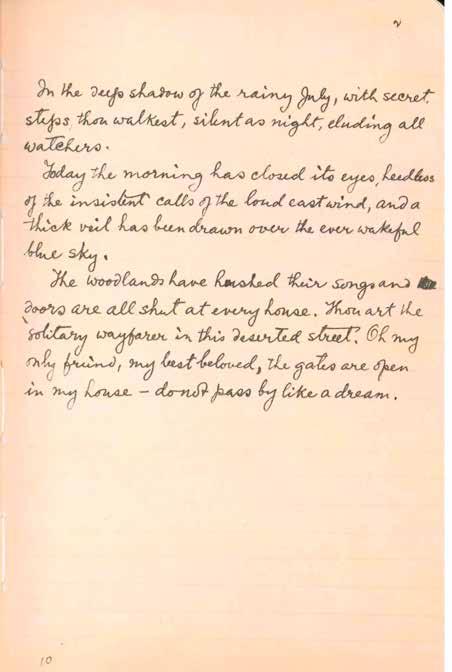 2
In the deep shadow of the rainy July, with secret
steps, thou walkest, silent as night, eluding all
watchers.
Today the morning has closed its eyes, heedless
of the insistent calls of the loud east wind, and a
thick veil has been drawn over the ever wakeful
blue sky.
The woodlands have hushed their songs and
doors are all shut at every house. Thou art the
solitary wayfarer in this deserted street. Oh my
only friend, my best beloved, the gates are open
in my house – do not pass by like a dream.
10